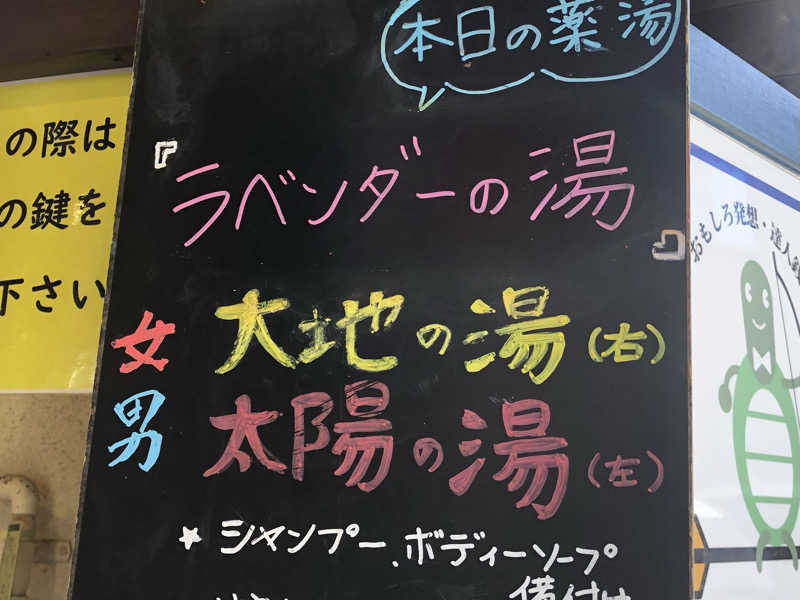 本日の薬湯
『ラベンダーの湯』
女 大地の湯(右)
男 太陽の湯(左)
★シャンプー、ボディーソープ
備付け
の際は
の鍵を
下さい
おもしろ発想・達人